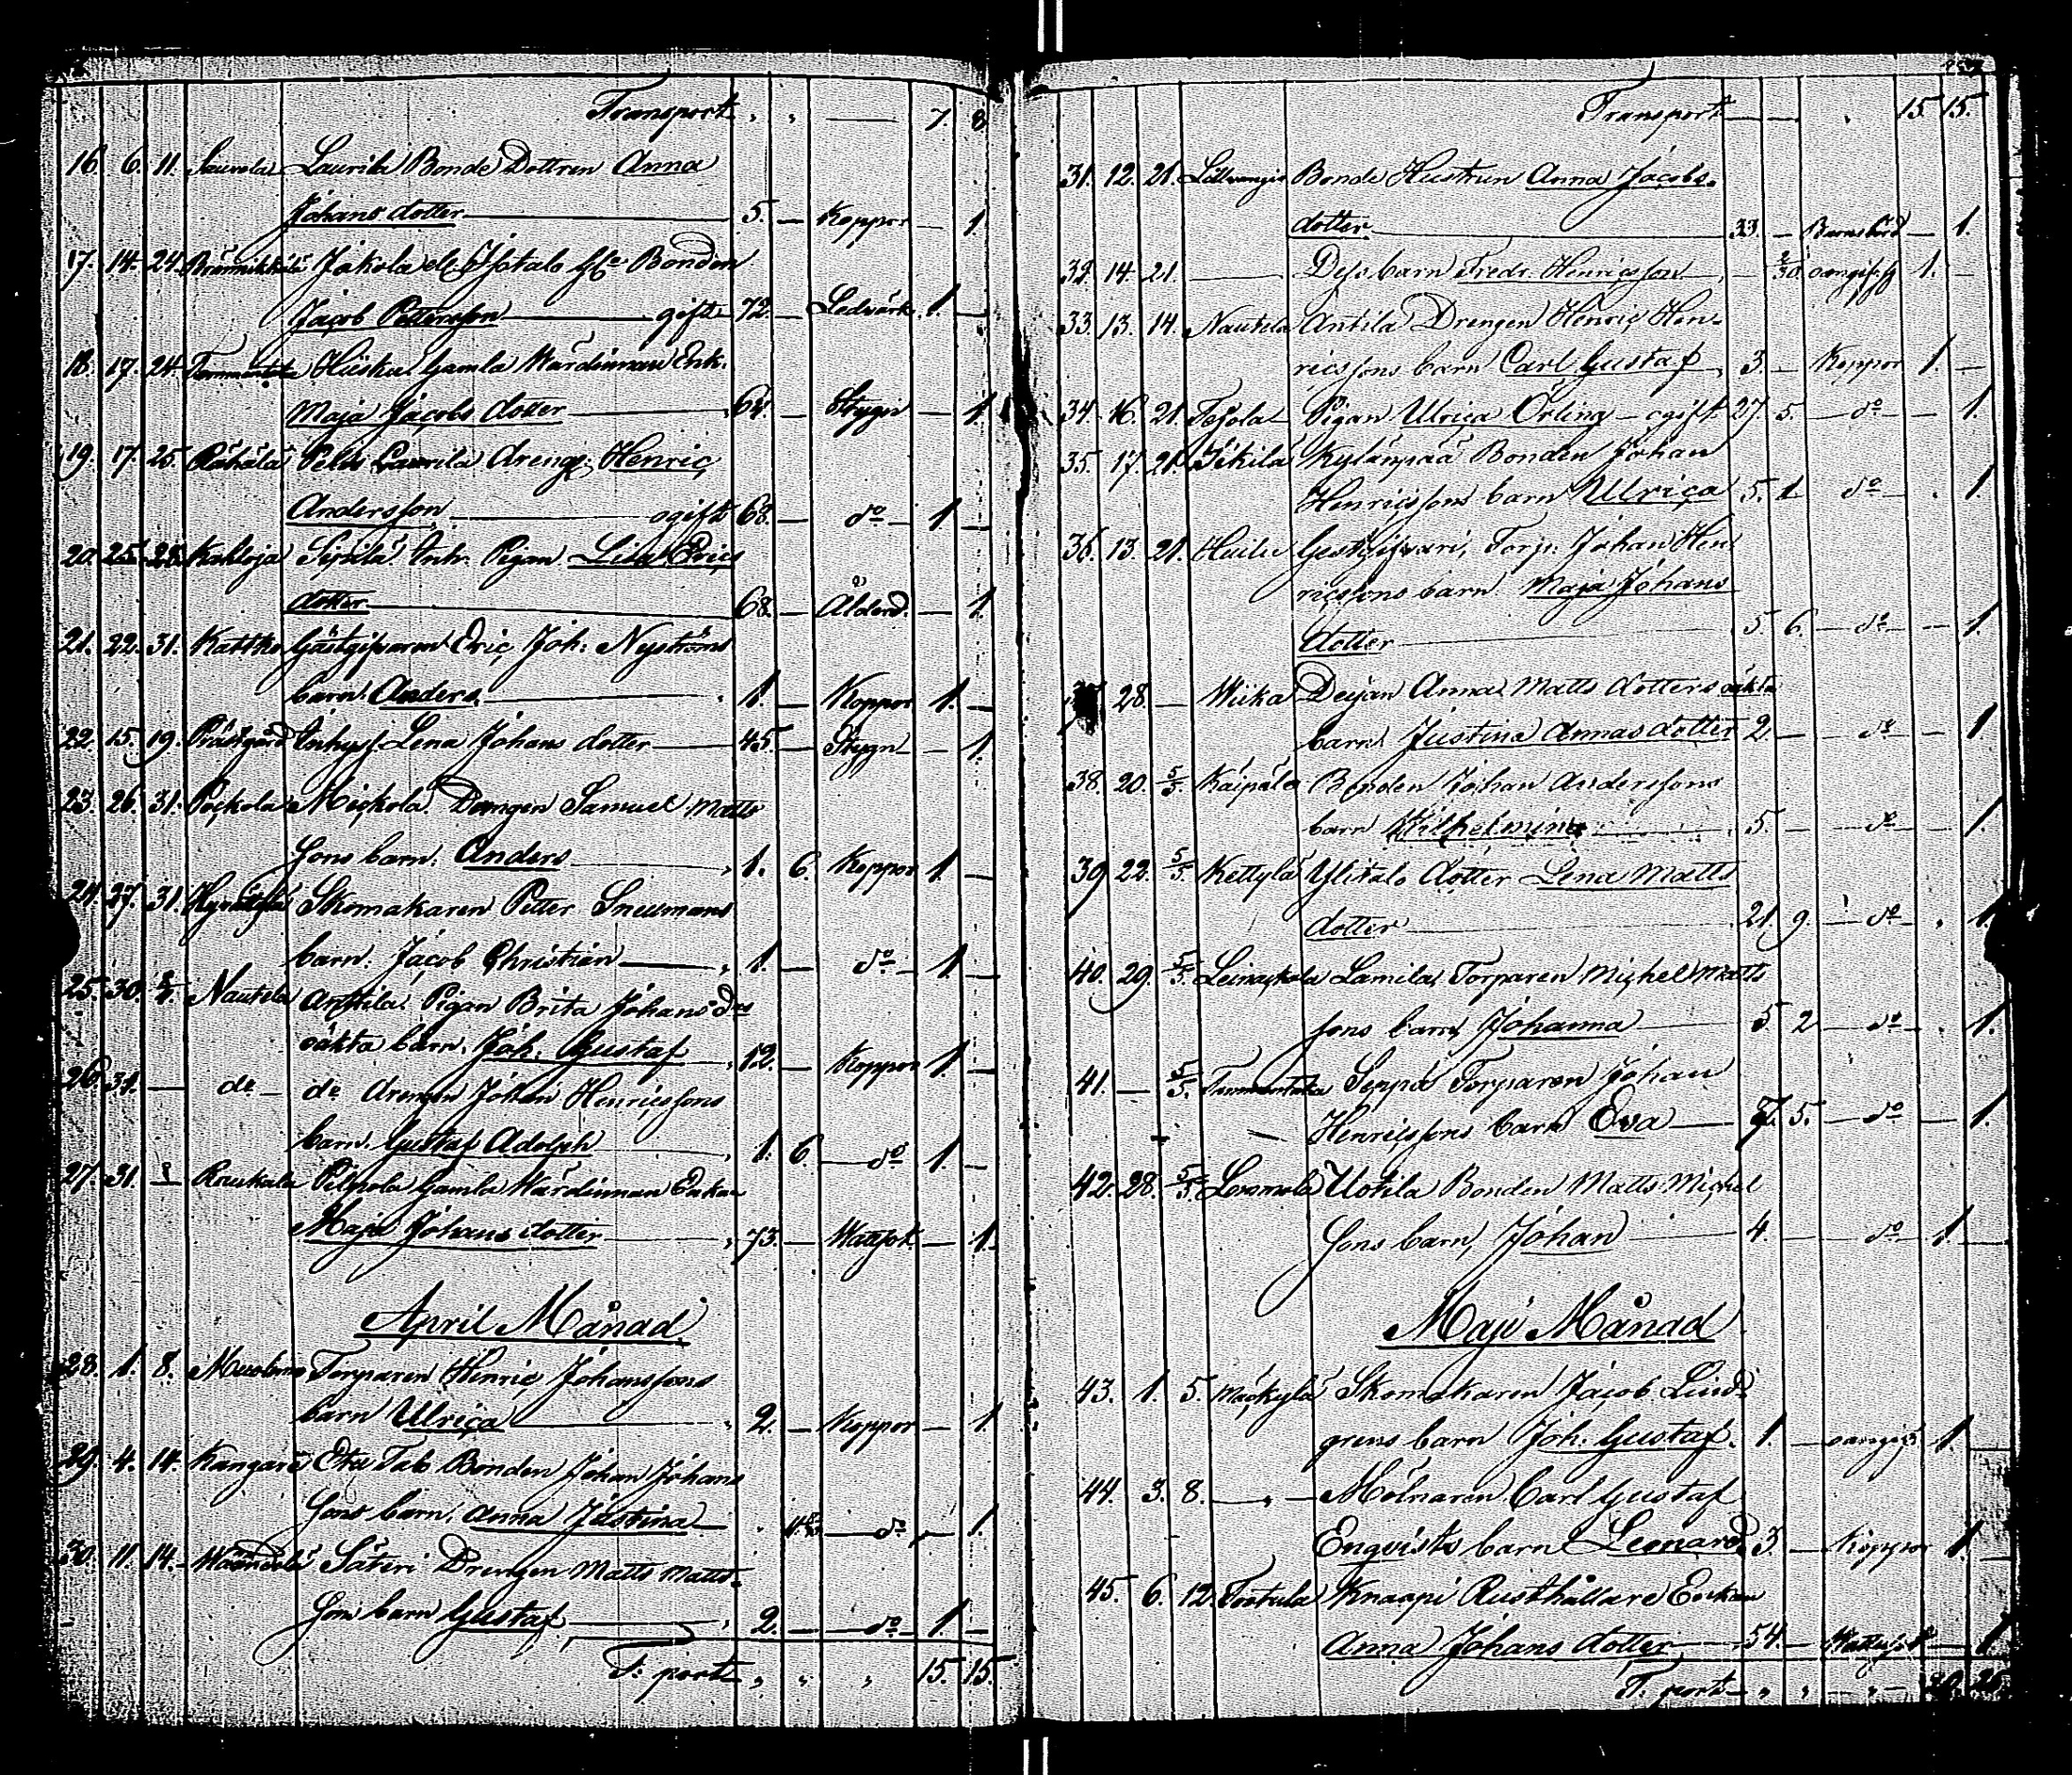 Transport " " — 7. 8
16. 6. 11. Laurila Bonde Dottren Anna
Johans dotter — 5. — Koppor — 1
17. 14. 24. Jakola Bonden
Jacob Pettersson — gift 72. — Ledvärk 1. —
18. 17. 24. Gamla Wärdinnan Enk.
Maja Jacobs dotter — 64. — Stygn — 1
19. 17. 25. Laurila dreng. Henric
Andersson — ogift 68. — do — 1 —
20. 25. 28. Inh. Pigan Lisa Erics
dotter — 68. — Ålderd. — 1.
21. 22. 31. Kattko Gästgifvaren Eric Joh: Nyströms
barn. Anders — 1. — Koppor 1. —
22. 15. 19. Prästgård Inhys. Lena Johans dotter — 45. — Stygn — 1.
23. 26. 31. Drengen Samuel Matts
sons barn. Anders — 1. 6. Koppor 1. —
24. 27. 31. Skomakaren Petter Snellmans
barn. Jacob Christian — 1. — do — 1 —
25. 30. Nautela Anttila. Pigan Brita Johans drs
oäkta barn. Joh. Gustaf — 12. — Koppor 1 —
26. 31. — do — do drengen Johan Henricssons
barn. Gustaf Adolph — 1. 6. — do 1. —
27. 31. Gamla Wärdinnan Enkan
Maja Johans dotter — 73. — Wattsot — 1.
April Månad
28. 1. 8. Torparen Henric Johanssons
barn Ulrica — 2. — Koppor — 1
29. 4. 14. Bonden Johan Johans
sons barn, Anna Justina — do — 1.
30. 11. 14. Säteri Drengen Matts Matts-
sons barn Gustaf — 2. — do — 1. —
T: port " " " 15. 15.
Transport — — " 15. 15.
31. 12. 21. Bonde Hustrun Anna Jacobs-
dotter — 33. — Barnsbörd — 1.
32. 14. 21. — Dess barn Fredr. Henricsson — 1. —
33. 13. 14. Nautela Antila Drengen Henric Hen-
ricssons barn Carl Gustaf 3. — Koppor 1. —
34. 16. 21. Pigan Ulrica Örling — ogift 27. 5. — do — 1.
35. 17. 21. Kylänpää Bonden Johan
Henricssons barn Ulrica 5. 1 do — 1.
36. 13. 21. Torp. Johan Hen
ricssons barn Maja Johans
dotter — 5. 6. — do — 1.
28. — Deijan Anna Matts dotters oäkta
barn Justina Annas dotter 2. — do — 1
38. 20. 5/5. Bonden Johan Anderssons
barn Wilhelmina — 5. — do — 1.
39 22. 5/5. Kettylä Ylitalo dotter Lena Matts
dotter — 21. 9. — do " 1.
40. 29. 5/5. Torparen Michel Matts
sons barn Johanna — 5 2 — do — 1.
41. — 5/5. Seppä Torparen Johan
Henricssons barn Eva — 5. — do — 1.
42. 28. 5/5. Uotila Bonden Matts Michel
sons barn, Johan — 4. — do 1. —
Maji Månad
43. 1. 5. Mäckylä Skomakaren Jacob Lind-
grens barn Joh. Gustaf. 1. — 1. —
44. 3. 8. — " — Mölnaren Carl Gustaf
Enqvists barn Leonard 3. — Koppor 1. —
45. 6. 12. Tortula Knaapi Rusthållare Enkan
Anna Johans dotter — 54. — Wattsot — 1
T. port — " " — " —